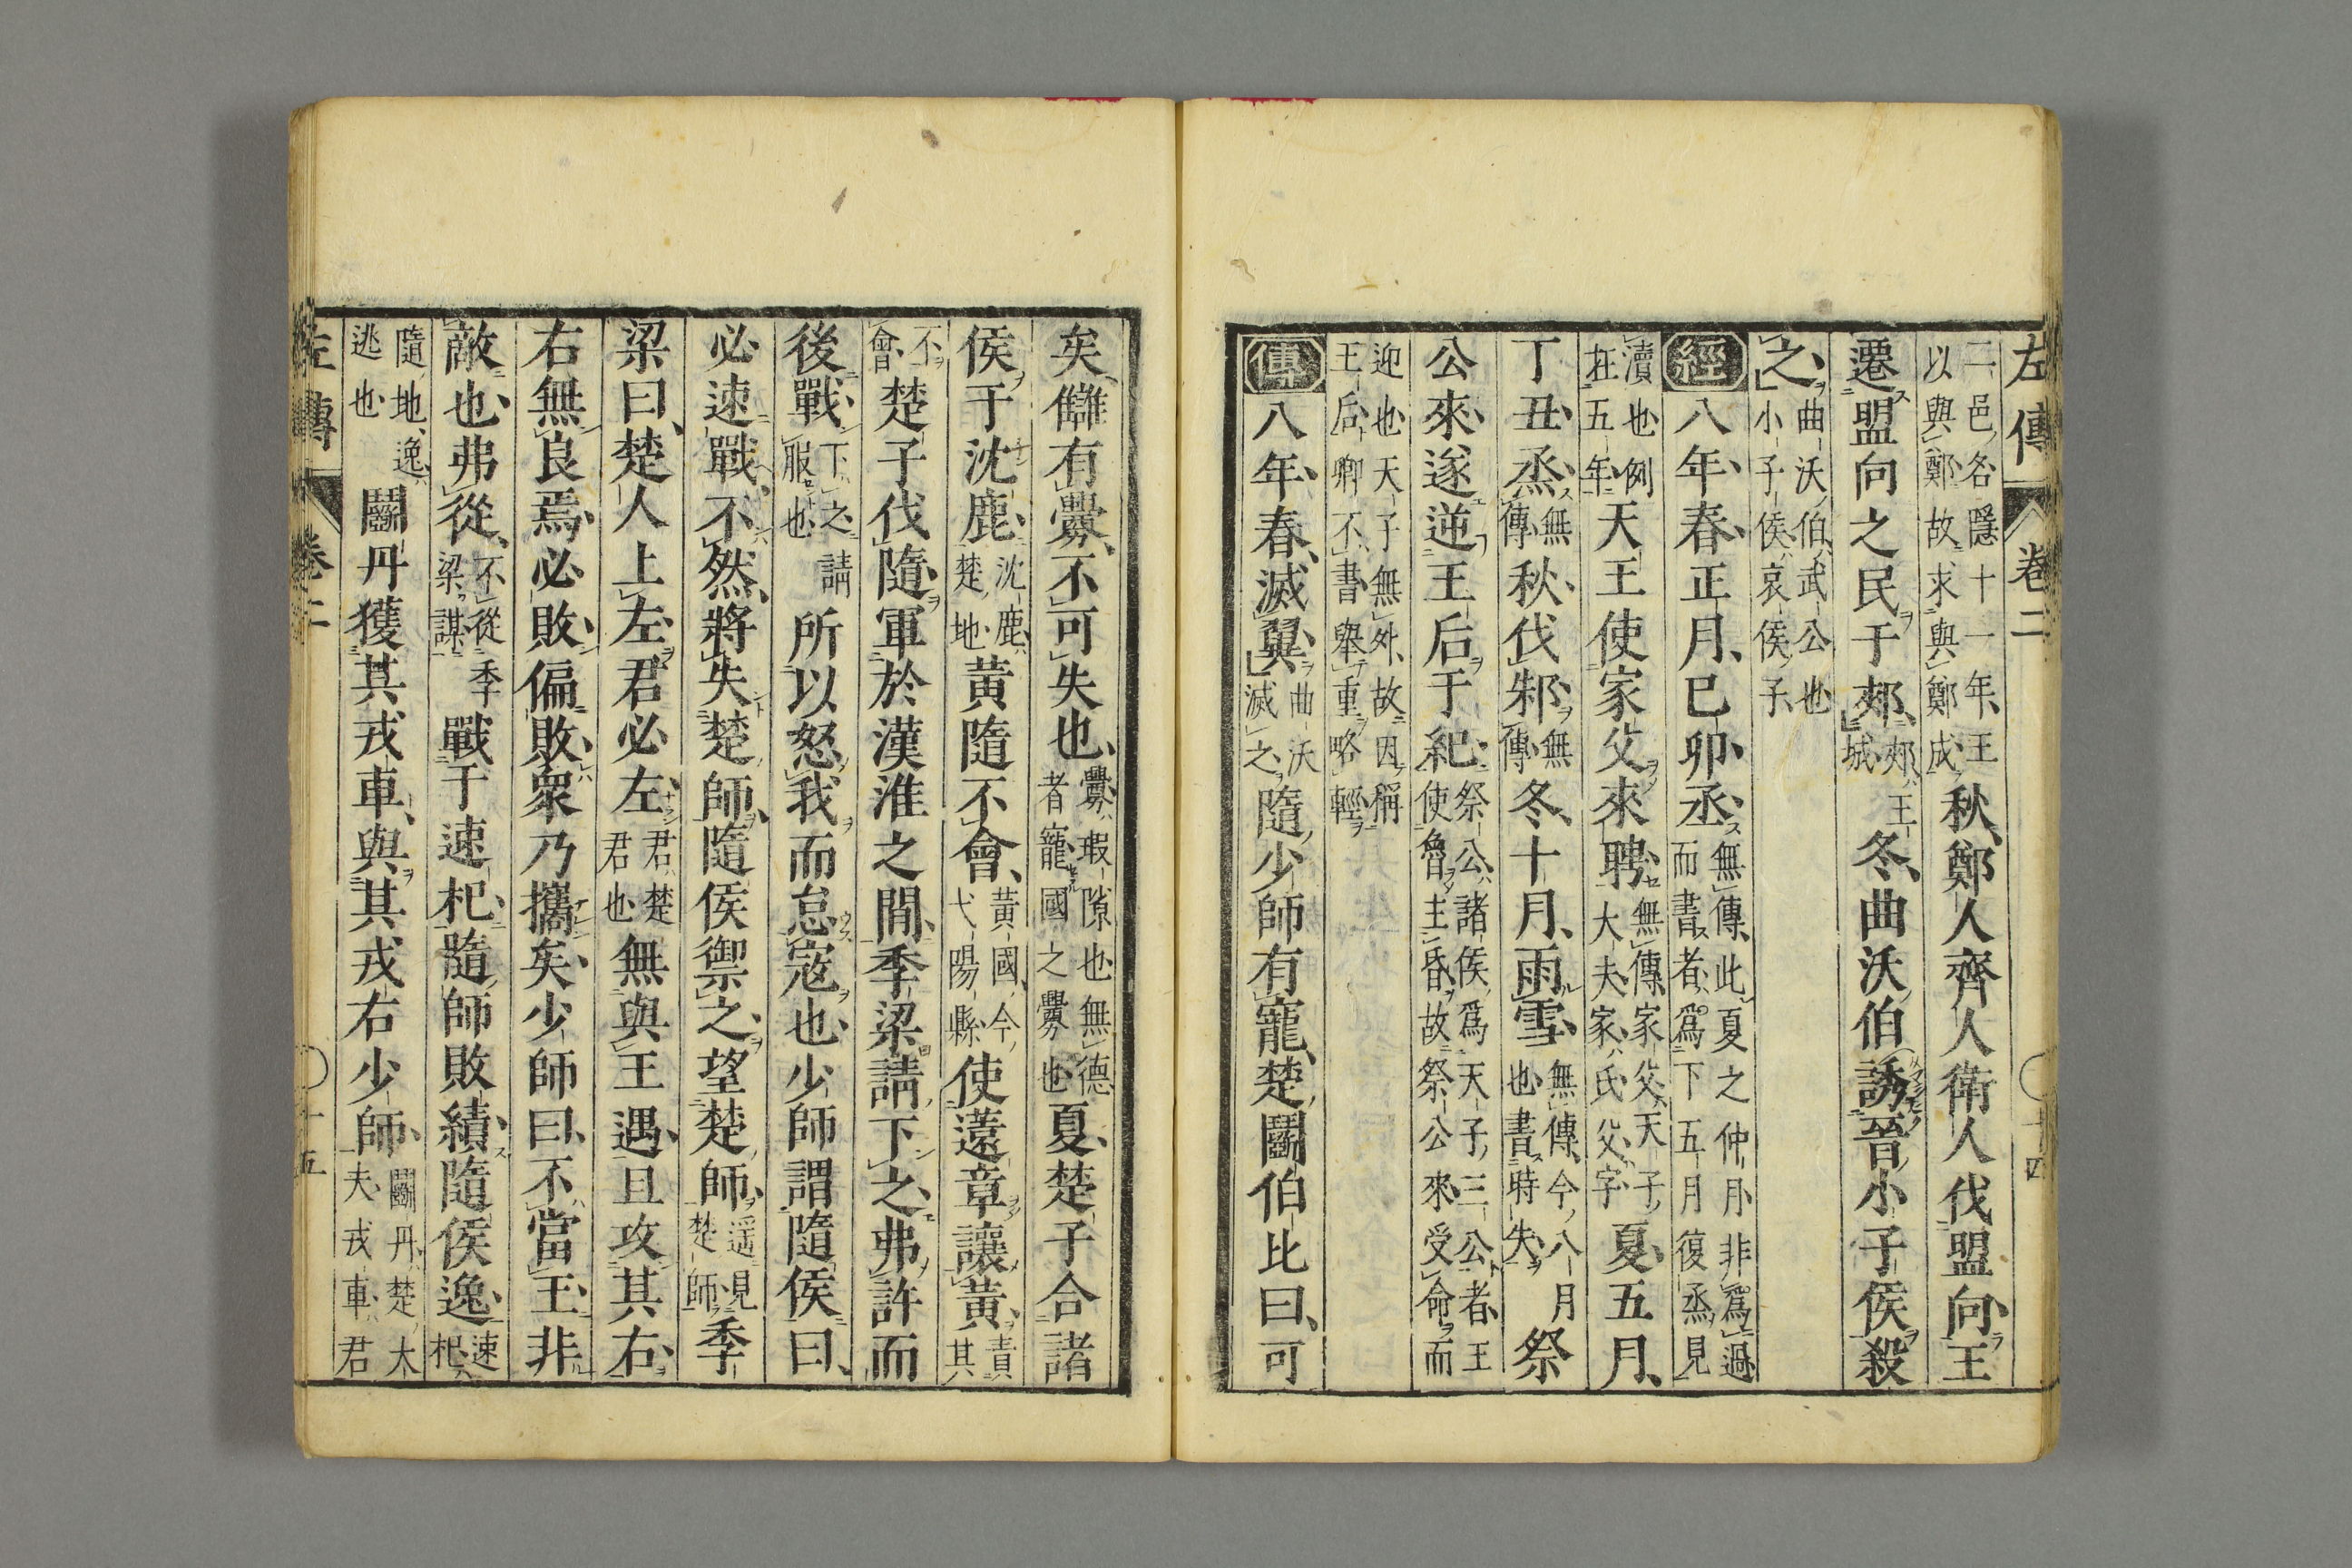 左傳 卷二 〇十四
二邑名隱十一年王以與鄭故求與鄭成秋鄭人齊人衛人伐盟向王
遷盟向之民于郟郟王城冬曲沃伯誘晉小子侯殺
之曲沃伯武公也小子侯哀侯子
經八年春正月巳卯丞無傳此夏之仲月非爲過而書者爲下五月復烝見
瀆也例在五年天王使家父來聘無傳家父天子大夫家氏父字夏五月
丁丑烝無傳秋伐邾無傳冬十月雨雪無傳今八月也書時失祭
公來遂逆王后于紀祭公諸侯爲天子三公者王使魯主昏故祭公來受命而
迎也天子無外故因稱王后卿不書舉重略輕
傳八年春滅翼曲沃滅之隨少師有寵楚鬭伯比曰可
矣讎有釁不可失也釁瑕隙也無德者寵國之釁也夏楚子合諸
侯于沈鹿沈鹿楚地黃隨不會黃國今弋陽縣使薳章讓黃責其
不會楚子伐隨軍於漢淮之間季梁請下之弗許而
後戰下之請服也所以怒我而怠寇也少師謂隨侯曰
必速戰不然將失楚師隨侯禦之望楚師遥見楚師季
梁曰楚人上左君必左君楚君也無與王遇且攻其右
右無良焉必敗偏敗衆乃攜矣少師曰不當王非
敵也弗從不從季梁謀戰于速杞隨師敗績隨侯逸速杞
隨地逸逃也鬭丹獲其戎車與其戎右少師鬭丹楚大夫戎車君
左傳 卷二 〇十五